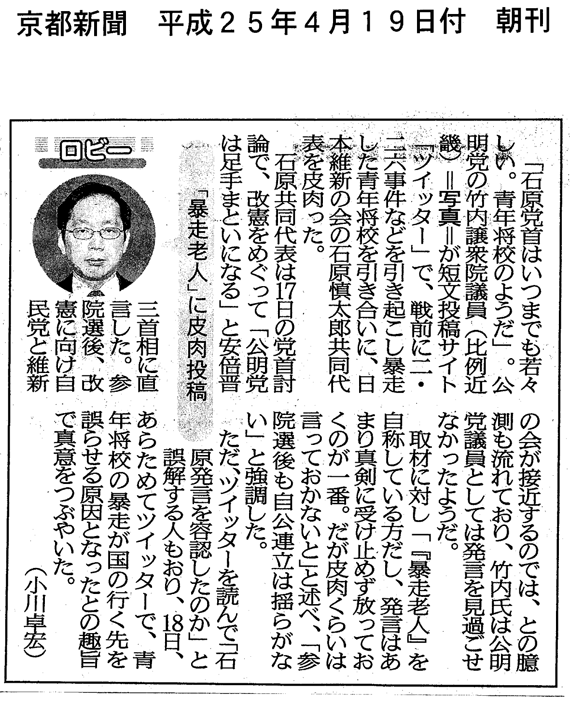 京都新聞　平成２５年４月１９日付　朝刊
ロビー
「暴走老人」に皮肉投稿
「石原党首はいつまでも若々
しい。青年将校のようだ」。公
明党の竹内譲衆院議員（比例近
畿）＝写真＝が短文投稿サイト
「ツイッター」で、戦前に二・
二六事件などを引き起こし暴走
した青年将校を引き合いに、日
本維新の会の石原慎太郎共同代
表を皮肉った。
石原共同代表は17日の党首討
論で、改憲をめぐって「公明党
は足手まといになる」と安倍晋
三首相に直
言した。参
院選後、改
憲に向け自
民党と維新
の会が接近するのでは、との臆
測も流れており、竹内氏は公明
党議員としては発言を見過ごせ
なかったようだ。
取材に対し「『暴走老人』を
自称している方だし、発言はあ
まり真剣に受け止めず放ってお
くのが一番。だが皮肉くらいは
言っておかないと」と述べ、「参
院選後も自公連立は揺らがな
い」と強調した。
ただ、ツイッターを読んで「石
原発言を容認したのか」と
誤解する人もおり、18日、
あらためてツイッターで、青
年将校の暴走が国の行く先を
誤らせる原因となったとの趣旨
で真意をつぶやいた。
（小川卓宏）